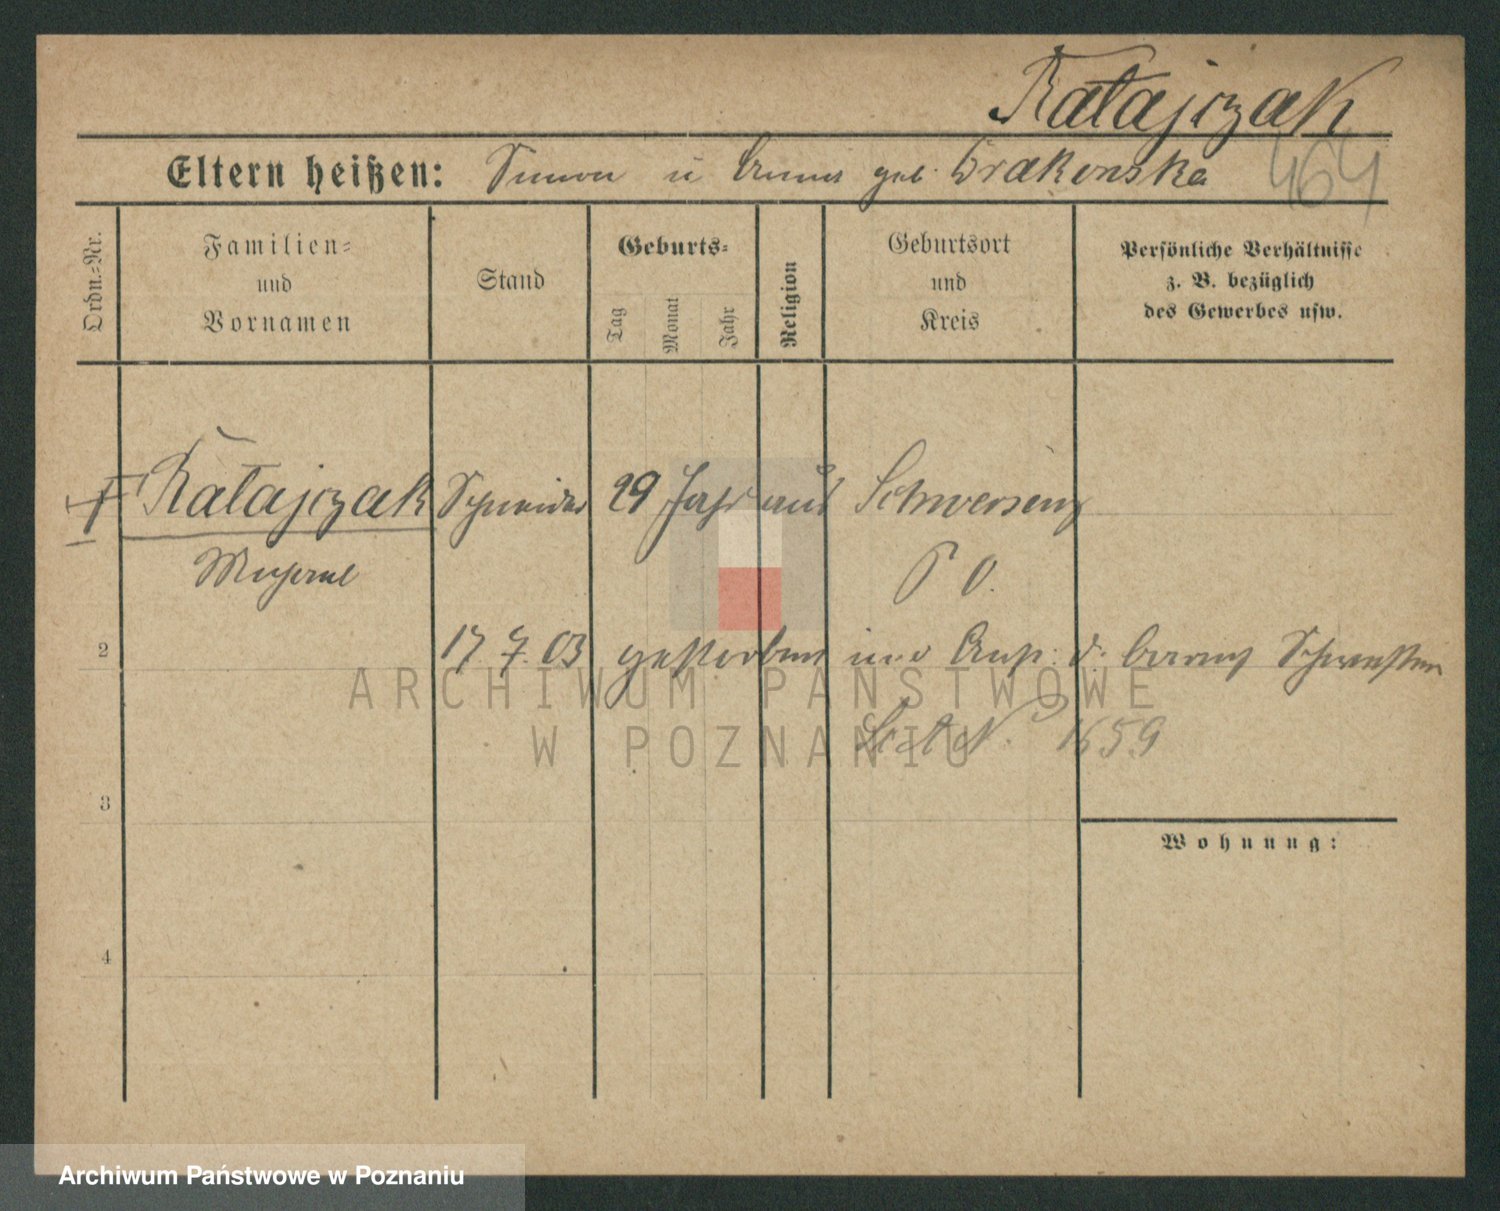 Ratajczak
Eltern heißen: Simon u Anna geb. Drakowska 464
Ordn.=Nr.
Familien=
und
Vornamen
Stand
Geburts=
Tag
Monat
Jahr
Religion
Geburtsort
und
Kreis
Persönliche Verhältnisse
z. B. bezüglich
des Gewerbes usw.
Ratajczak Schneider 29 Jahr aus Schwersenz
Michael P O.
2 17 7. 03 gestorben im d. barmh Schwestern
No 1659
3
4
Wohnung:
ARCHIWUM PAŃSTWOWE
W POZNANIU
Archiwum Państwowe w Poznaniu